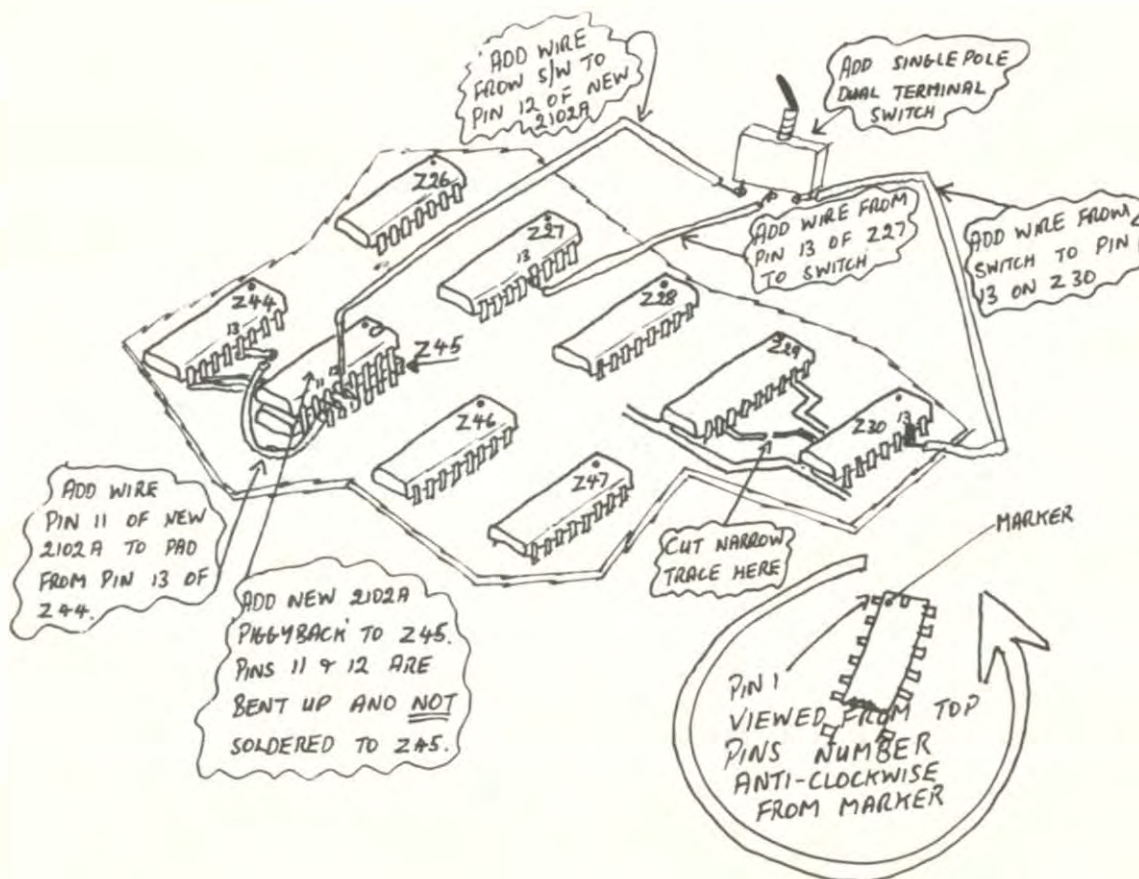 ADD WIRE
FROM S/W TO
PIN 12 OF NEW
2102A
ADD SINGLE POLE
DUAL TERMINAL
SWITCH
ADD WIRE FROM
PIN 13 OF Z27
TO SWITCH
ADD WIRE FROM
SWITCH TO PIN
13 ON Z30
Z26
Z27
13
Z28
Z29
Z30
13
Z44
13
Z45
11
12
Z46
Z47
ADD WIRE
PIN 11 OF NEW
2102A TO PAD
FROM PIN 13 OF
Z44.
ADD NEW 2102A
'PIGGYBACK' TO Z45.
PINS 11 & 12 ARE
BENT UP AND NOT
SOLDERED TO Z45.
CUT NARROW
TRACE HERE
MARKER
PIN 1
VIEWED FROM TOP
PINS NUMBER
ANTI-CLOCKWISE
FROM MARKER